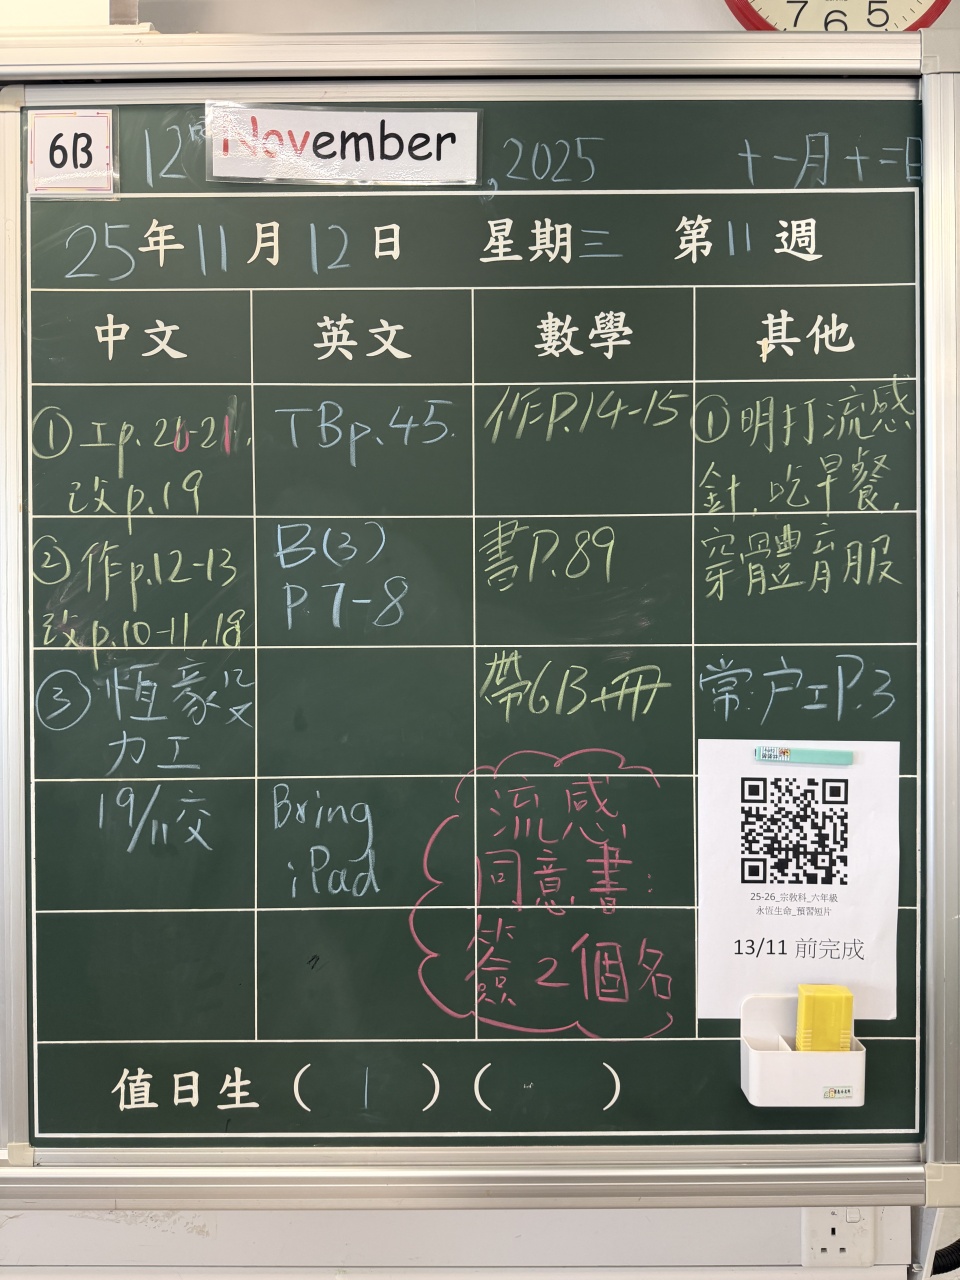 7 6 5
6B
12 November, 2025 十一月十二日
25年11月12日 星期三 第11週
中文 英文 數學 其他
①工p.20-21.
改p.19
TBp.45.
作P.14-15
①明打流感
針,吃早餐,
②作p.12-13
改p.10-11,18
B(3)
P.7-8
書P.89
穿體育服
③恆豪
力工
帶6B冊
常:户工P.3
19/11交
Bring
iPad
流感
同意書:
簽2個名
25-26_宗教科_六年級
永恆生命_預習短片
13/11 前完成
值日生 ( 1 ) ( )